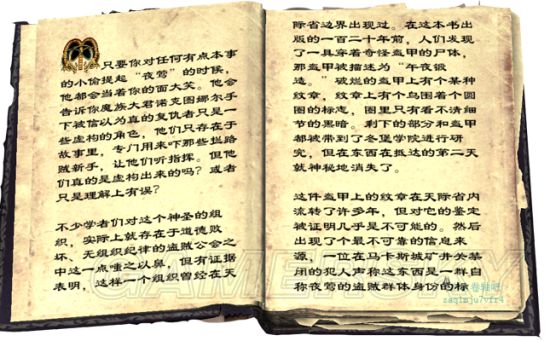 只要你对任何有点本事
的小偷提起“夜莺”的时候，
他都会当着你的面大笑。他会
告诉你魔族大君诺克图娜尔手
下被信以为真的复仇者只是一
些虚构的角色，他们只存在于
故事里，专门用来吓那些拦路
贼新手，让他们听指挥。但他
们真的是虚构出来的吗？或者
只是理解上有误？
不少学者们对这个神圣的组
织，实际上就存在于道德败
坏、无组织纪律的盗贼公会之
中这一点嗤之以鼻，但有证据
表明，这样一个组织曾经在天
际省边界出现过。在这本书出
版的一百二十年前，人们发现
了一具穿着奇怪盔甲的尸体，
那盔甲被描述为“午夜锻
造。”破烂的盔甲上有个某种
纹章，纹章上有个鸟围着个圆
圈的标志，圈里只有看不清细
节的黑暗。剩下的部分和盔甲
都被带到了冬堡学院进行研
究，但在东西在抵达的第二天
就神秘地消失了。
这件盔甲上的纹章在天际省内
流转了许多年，但对它的鉴定
被证明几乎是不可能的。然后
出现了个最不可靠的信息来
源，一位在马卡斯城矿井关禁
闭的犯人声称这东西是一群自
称夜莺的盗贼群体身份的标
GAMERSKY
卷轴吧
zaq1mju7vfr4